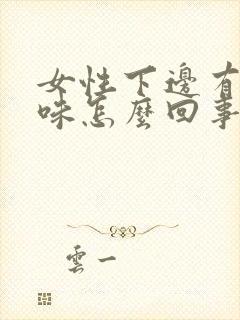 女性下邊有
味怎麼回事
雲一